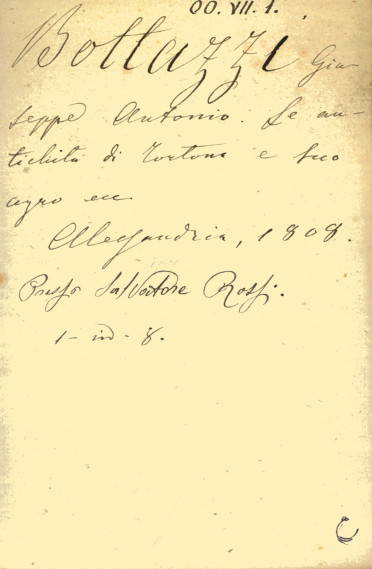 OO. VII. 1.
Bottazzi Giu-
seppe Antonio. Le an-
tichità di Tortona e suo
agro ecc
Alessandria, 1808.
Presso Salvatore Rossi.
1 - in - 8.